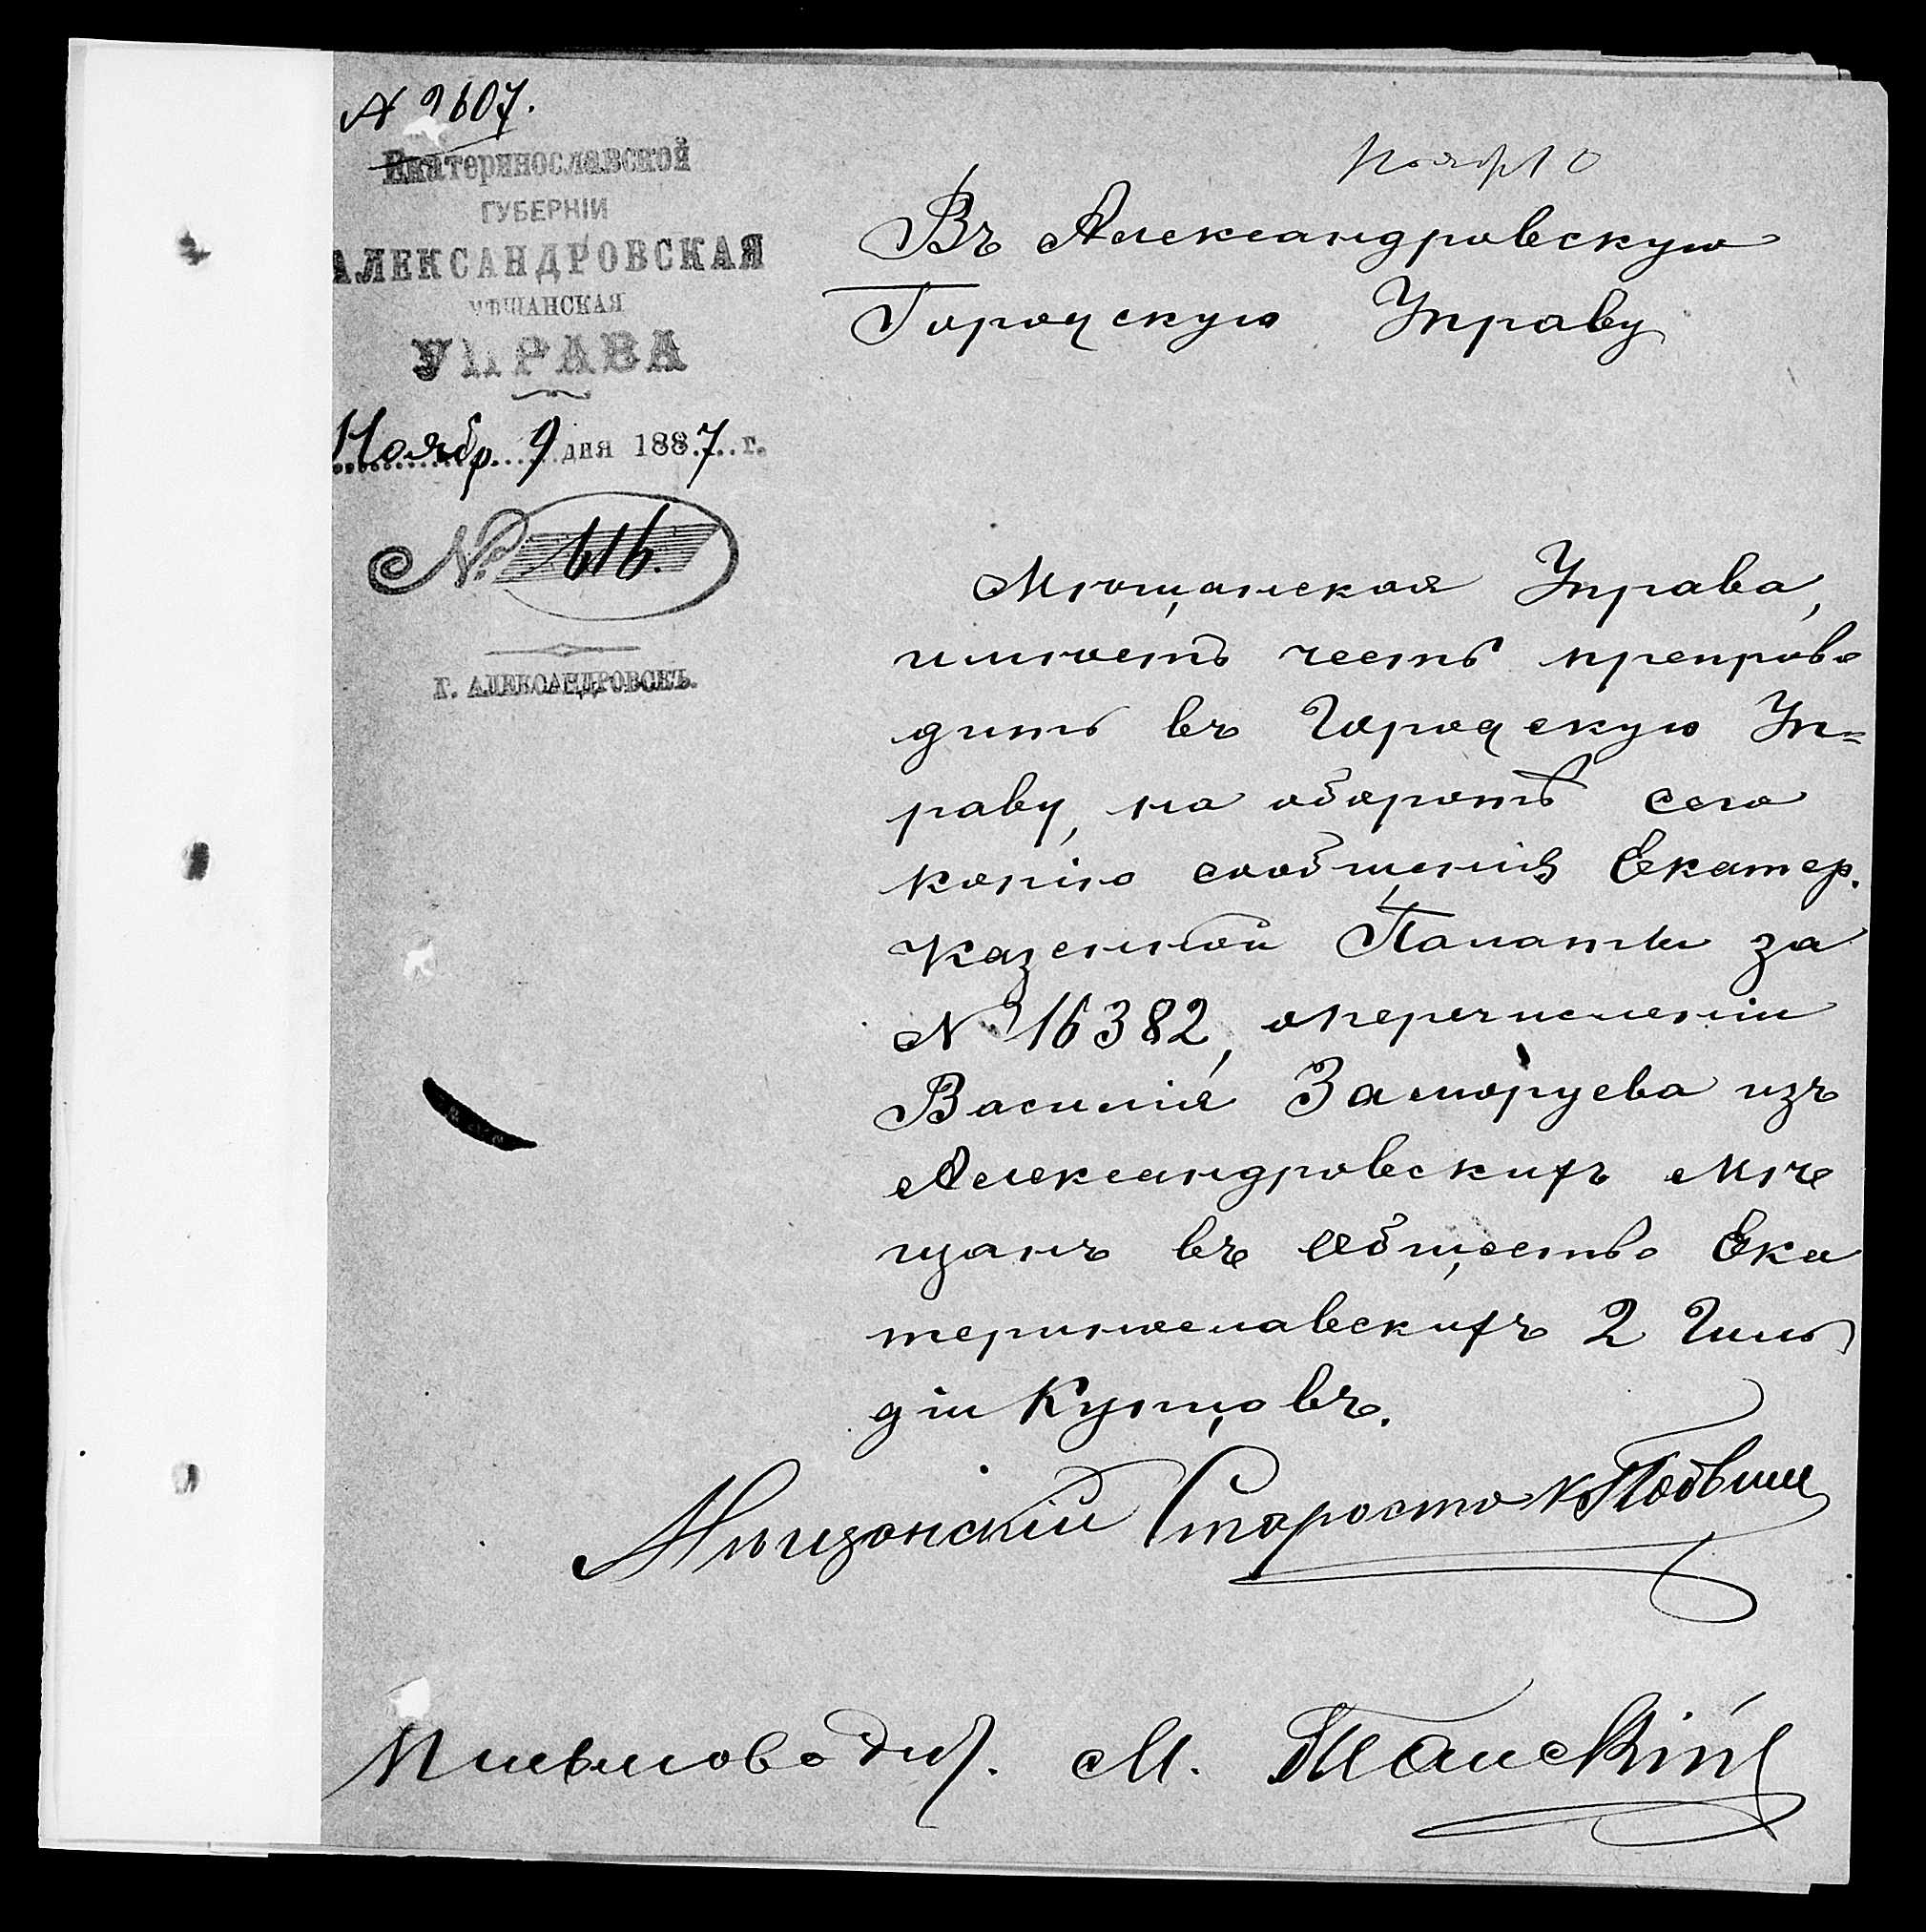 № 2607.
Екатеринославской
ГУБЕРНІИ
АЛЕКСАНДРОВСКАЯ
МѢЩАНСКАЯ
УПРАВА
Ноябр. 9 дня 1887 г.
№ 616.
Г. АЛЕКСАНДРОВСКЪ.
Въ Александровскую
Городскую Управу
Мѣщанская Управа,
имѣетъ честь препрово
дить въ Городскую Уп=
раву, на оборотѣ сего
копію сообщенія Екатер.
Казенной Палаты за
№ 16382, о перечисленіи
Василія Заморуева изъ
Александровскихъ мѣ
щанъ въ общество Ека
теринославскихъ 2 Гиль
діи Купцовъ.
Мѣщанскій Староста
Письмоводит. М.